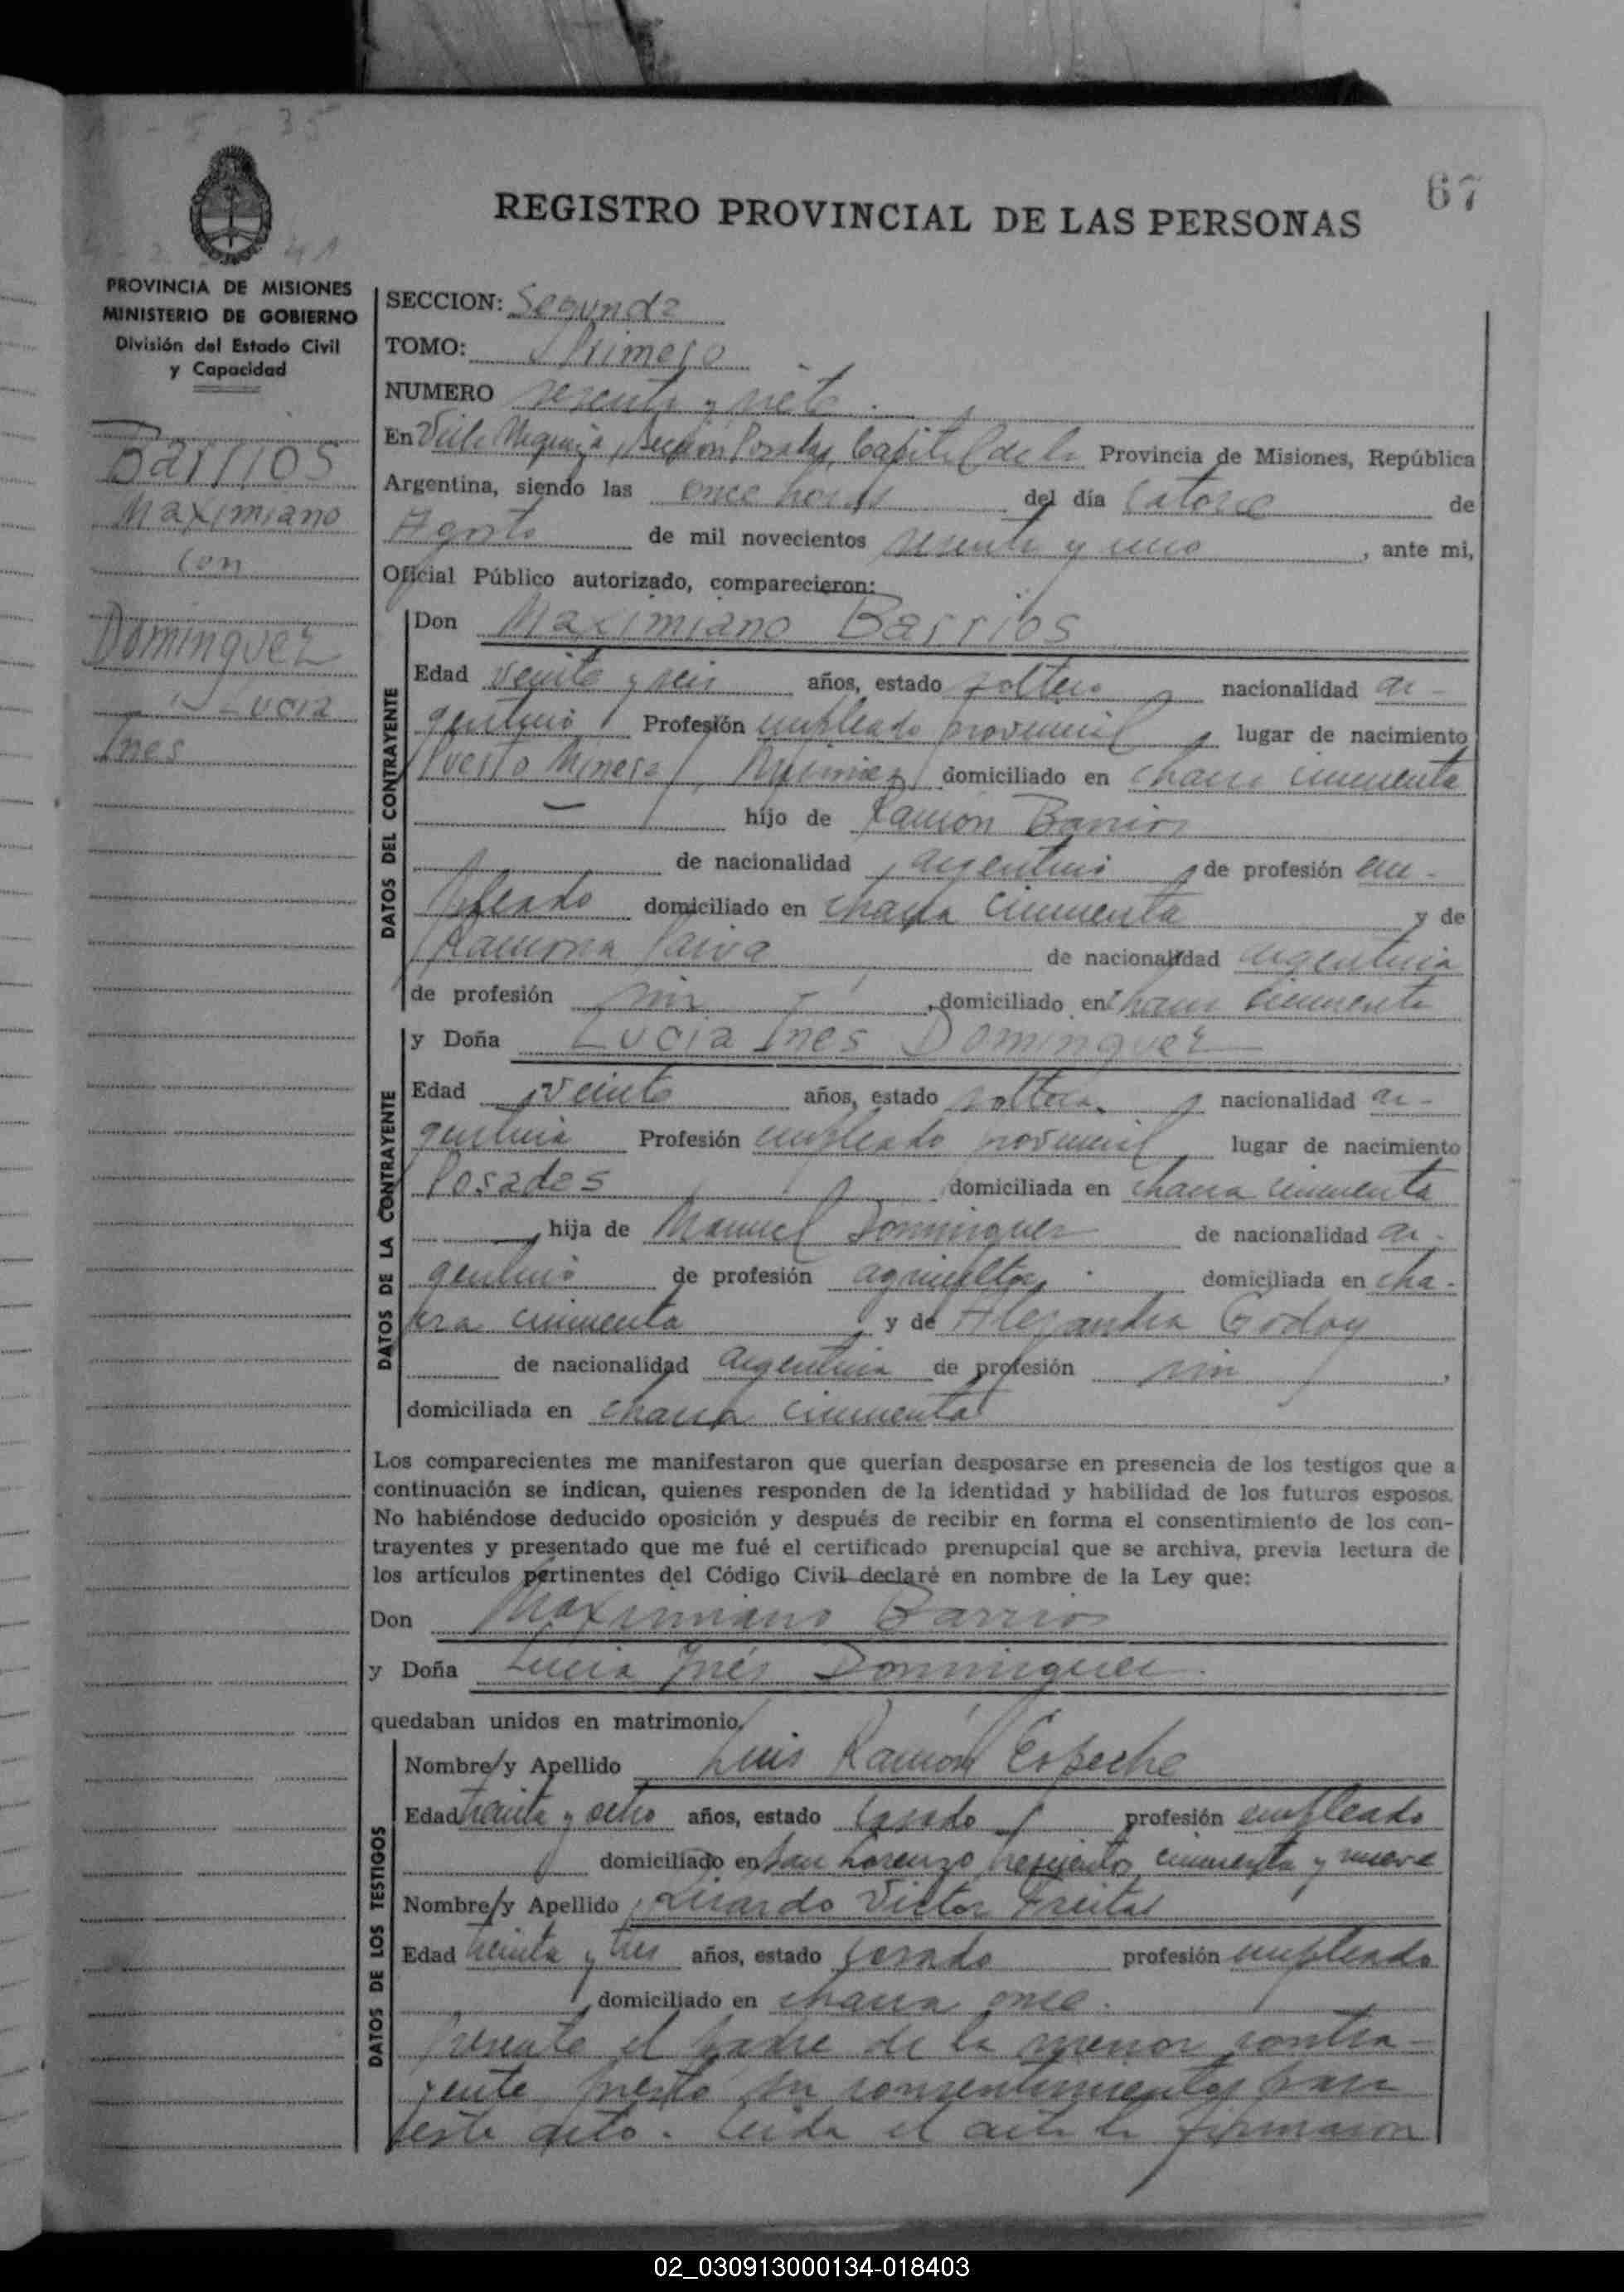 67
REGISTRO PROVINCIAL DE LAS PERSONAS
PROVINCIA DE MISIONES
MINISTERIO DE GOBIERNO
División del Estado Civil
y Capacidad
Barrios
Maximiano
con
Dominguez
Lucia
Ines
SECCION: Segunda
TOMO: Primero
NUMERO sesenta y siete
En Sección Posadas, Capital de la Provincia de Misiones, República
Argentina, siendo las once horas del día catorce de
Agosto de mil novecientos sesenta y uno, ante mi,
Oficial Público autorizado, comparecieron:
DATOS DEL CONTRAYENTE
Don Maximiano Barrios
Edad veinte y seis años, estado soltero nacionalidad ar-
gentino Profesión empleado provincial, lugar de nacimiento
Puerto Mineral, Misiones domiciliado en chacra cincuenta
hijo de Ramón Barrios
de nacionalidad argentino, de profesión em-
pleado domiciliado en chacra cincuenta y de
Ramona Paiva de nacionalidad argentina
de profesión sin, domiciliado en chacra cincuenta
DATOS DE LA CONTRAYENTE
y Doña Lucia Ines Dominguez
Edad veinte años, estado soltera, nacionalidad ar-
gentina Profesión empleado provincial lugar de nacimiento
Posadas domiciliada en chacra cincuenta
hija de Manuel Dominguez de nacionalidad ar-
gentino de profesión agricultor domiciliada en cha-
cra cincuenta y de Alejandra Godoy
de nacionalidad argentina de profesión sin,
domiciliada en chacra cincuenta
Los comparecientes me manifestaron que querían desposarse en presencia de los testigos que a
continuación se indican, quienes responden de la identidad y habilidad de los futuros esposos.
No habiéndose deducido oposición y después de recibir en forma el consentimiento de los con-
trayentes y presentado que me fué el certificado prenupcial que se archiva, previa lectura de
los artículos pertinentes del Código Civil declaré en nombre de la Ley que:
Don Maximiano Barrios
y Doña Lucia Inés Dominguez
quedaban unidos en matrimonio.
DATOS DE LOS TESTIGOS
Nombre y Apellido Luis Ramón Espeche
Edad treinta y ocho años, estado casado profesión empleado
domiciliado en San Lorenzo trescientos cincuenta y nueve
Nombre y Apellido Victor Freitas
Edad treinta y tres años, estado casado profesión empleado
domiciliado en chacra once.
Presente el padre de la menor contra-
yente prestó su consentimiento para
este acto. Leida el acta la firmaron
02_030913000134-018403